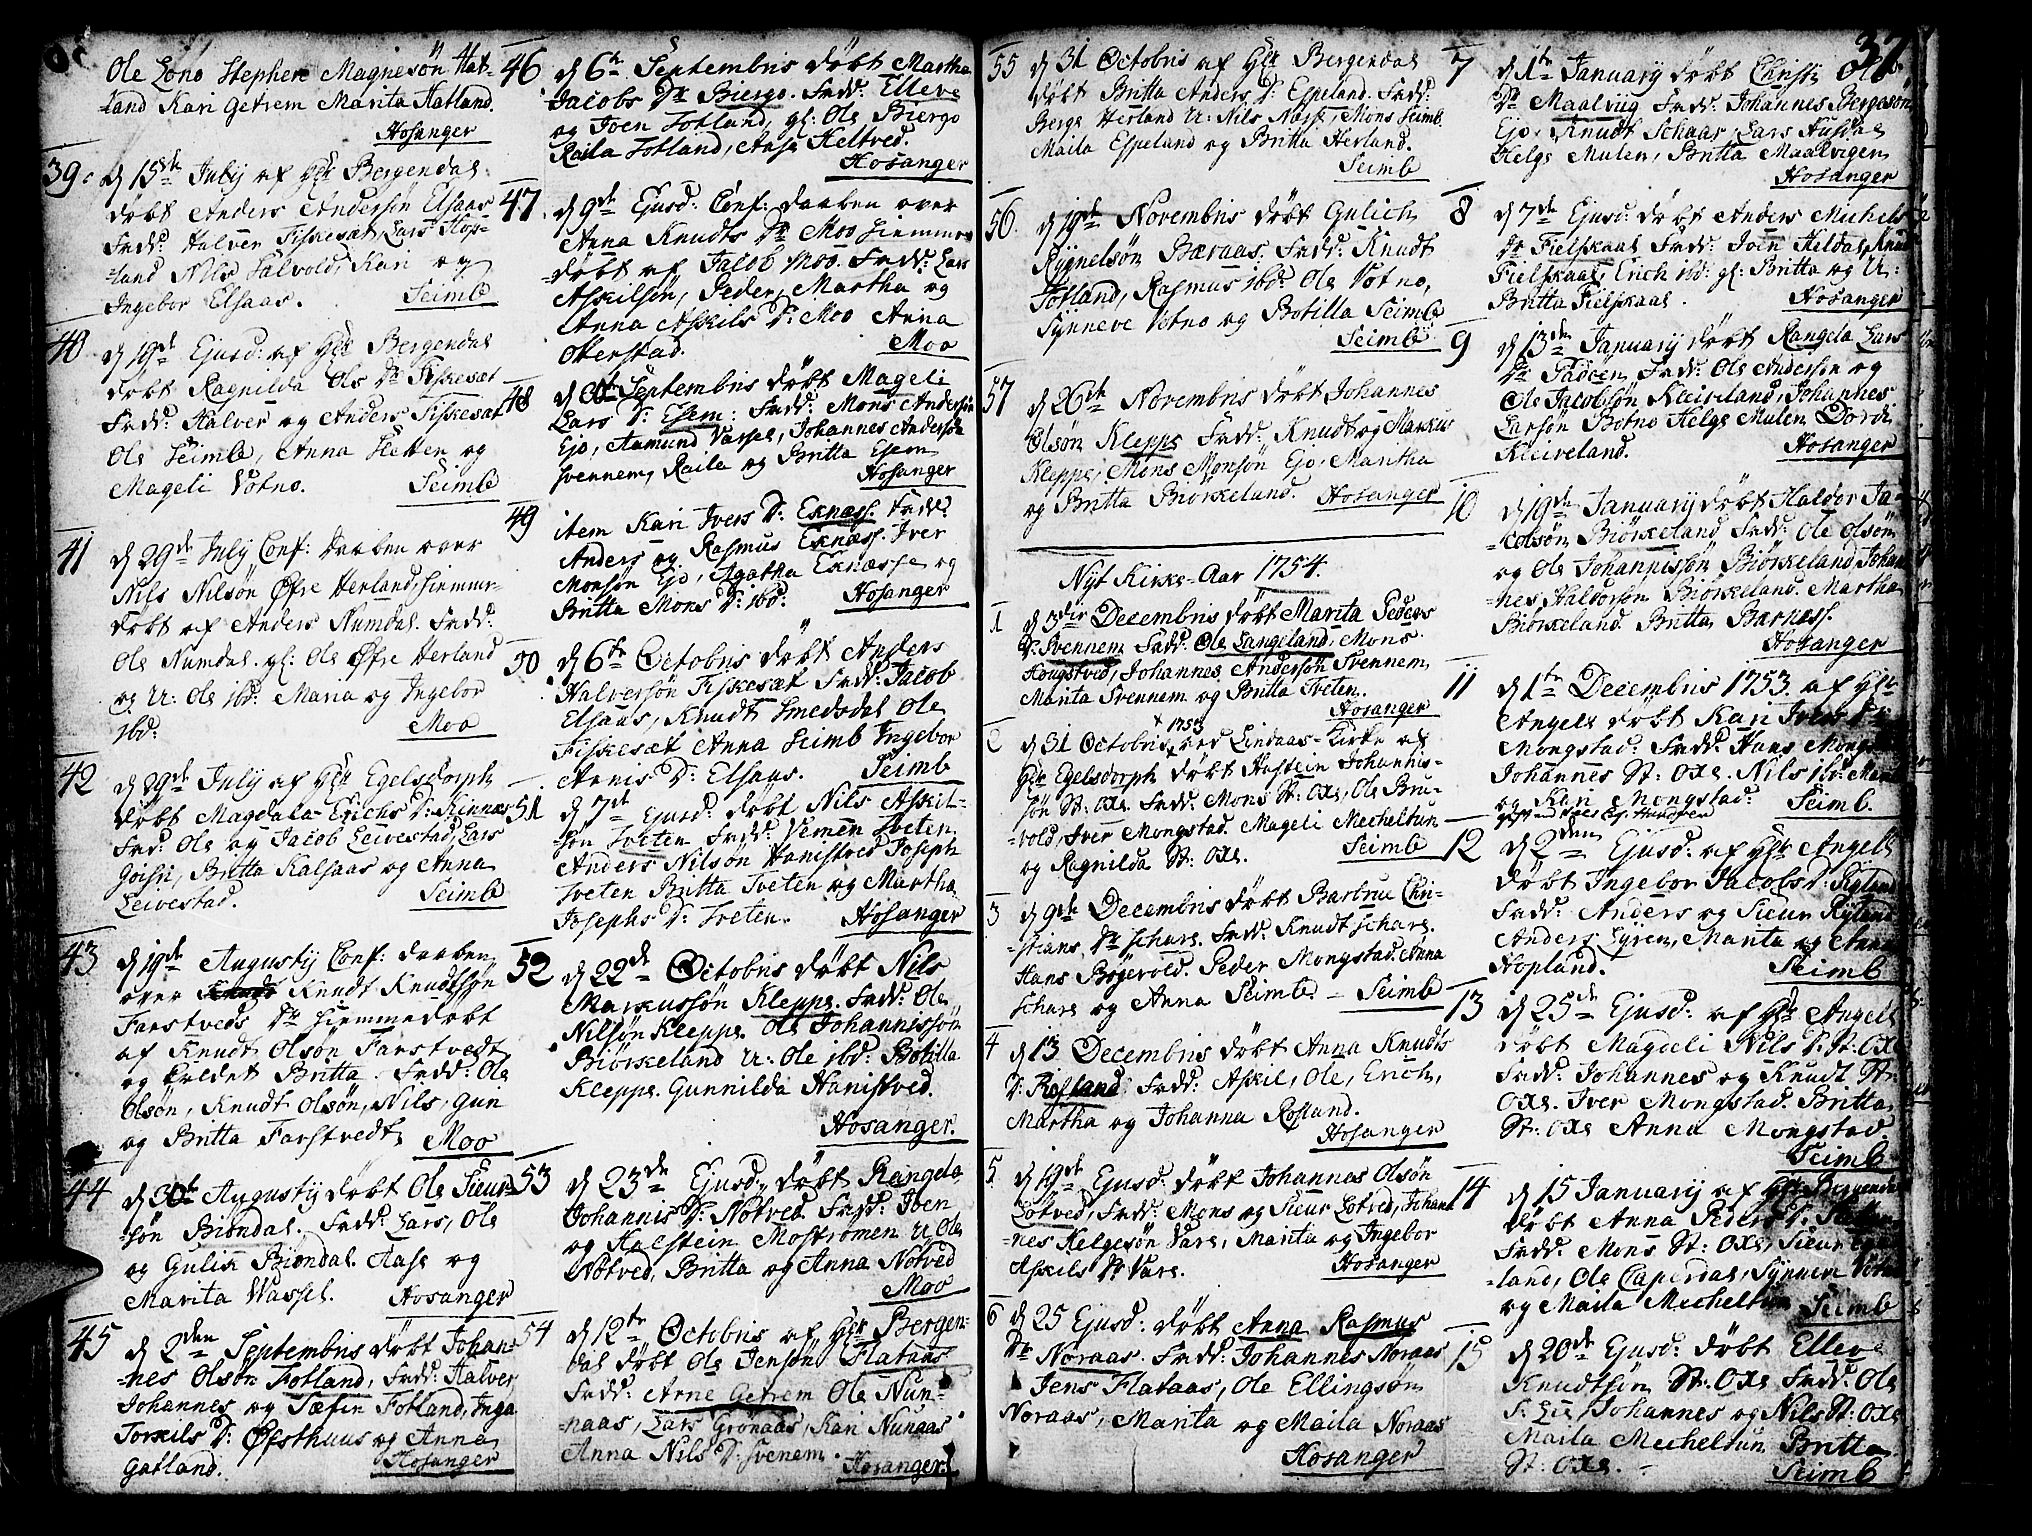 Ole Lono Stephen Magnesön Hat-
-land Kari Getrem Marita Hatland.
Hosanger
39. d 15de July af Hr Bergendal
döbt Anders Andersön Elsaas
Fadd: Halver Fiskesæt, Lars Hop-
-land Nils Kari og
Ingebor Elsaas. Seimb
40 d 19de Ejusd: af Hr Bergendal
döbt Ragnilda Ols Dr Fiskesæt
Fadd: Halver og Anders Fiskesæt
Ole Seimb, Anna Sletten og
Mageli Votno. Seimb
41 d 29de July Conf: Daaben over
Nils Nilsön Øfre Herland, hiemme-
döbt af Anders Numdal. Fadd:
Ole Numdal. gl: Ole Øfre Herland
og U: Ole ibd: Maria og Ingebor
ibd: Moo
42 d 29de July af Hr Egelsdorph
döbt Magdala Erichs D: Kinnæs
Fad: Ole og Jacob Leivestad, Lars
Britta Kalsaas og Anna
Leivestad. Seimb
43 d 19de Augustij Conf: daaben
over Knudt Knudtsön
Farstveds hiemmedöbt
af Knudt Olsön Farstvedt
og Britta. Fadd: Ole
Olsön, Knudt Olsön, Nils, Gun
og Britta Farstvedt, Moo
44 d 30te Augustij döbt Ole Sieur-
sön Biöndal. Fadd: Lars, Ole
og Gulich Biöndal. Aase og
Marita Vassel. Hosanger
45 d 2den Septembris döbt Johan-
-nes Olsön Fotland, Fadd: Halver,
Johannes og Sæfin Fotland, Inga
Torkils D: Øfsthuus og Anna
Gatland. Hosanger
46 d 6te Septembris döbt Martha
Jacobs Dr Biergo. Fadd: Elleve
og Joen Totland, gl: Ole Biergo
Raila Totland, Aase Heltved.
Hosanger
47 d 9de Ejusd: Conf: daaben over
Anna Knudts Dr Moo hiemme-
döbt af Jacob Moo. Fadd: Lars
Askilsön, Peder, Martha og
Anna Askils D: Moo Anna
Okerstad. Moo
48 d Septembris döbt Mageli
Lars D: Esem: Fadd: Mons Andersön
Ejo, Aamund Vassel, Johannes Andersön
Svennem, Raila og Britta Esem
Hosanger
49 item Kari Ivers D: Exnæss. Fadd:
Anders og Rasmus Exnæss. Iver
Monsön Ejo, Agatha Exnæsse og
Britta Mons D: ibd: Hosanger
50 d 6te Octobris döbt Anders
Halversön Fiskesæt Fadd: Jacob
Elsaas, Knudt Smedsdal Ole
Fiskesæt Anna Seimb Ingebor
Arnis D: Elsaas. Seimb
51 d 7de Ejusd: döbt Nils Askil-
sön Tveten Fadd: Vemen Tveten
Anders Nilsön Hanistved Joseph
Tveten Britta Tveten og Martha
Josephs D: Tveten. Hosanger
52 d 22de Octobris döbt Nils
Markussön Kleppe. Fadd: Ole
Nilsön Kleppe Ole Johannissön
Biörkeland U: Ole ibd: Botilla
Kleppe. Gunnilda Hanistved.
Hosanger.
53 d 23de Ejusd: döbt Rangela
Johannis D: Nötved Fadd: Joen
og Halstein Mostromen U. Ole
Nötved, Britta og Anna Nötved
Moo
54 d 12te Octobris af Hr Bergen-
dal döbt Ole Jensön Flataas
Fadd: Arne Getrem Ole Nun-
-naas, Lars Grönaas, Kari Nunaas
Anna Nils D: Svenem. Hosanger
55 d 31 Octobris af Hr Bergendal
döbt Britta Anders D: Espeland. Fadd:
Berge Herland U: Nils Nase, Mons Seimb
Maila Espeland og Britta Herland.
Seimb
56. d 19de Novembris döbt Gulich
Rygnelsön Bæraas. Fadd: Knudt
Totland, Rasmus ibd: Ole Votno,
Synneve Votno og Botilla Seimb
Seimb
57 d 26de Novembris döbt Johannes
Olsön Kleppe Fadd: Knudt og Markus
Kleppe, Mons Monsön Ejo, Martha
og Britta Biörkeland. Hosanger
Nyt Kirke-Aar 1754.
1 d 3die Decembris döbt Marita Peders
D: Svennem Fadd: Ole Langeland, Mons
Hougstved, Johannes Andersön Svennem
Marita Svennem og Britta Tveten.
Hosanger
2 d 31 Octobris 1753 ved Lindaas-Kirke af
Hr Egelsdorph döbt Hastein Johannis-
sön St: Oxe Fadd: Mons St: Oxe, Ole Bru-
-vold, Iver Mongstad. Mageli Mecheltun
og Ragnilda St: Oxe. Seimb
3 d 9de Decembris döbt Barbrue Chri-
-stians Dr Schare. Fadd: Knudt Schare.
Hans Bögevold. Peder Mongstad. Anna
Schare og Anna Seimb. - Seimb
4 d 13 Decembris döbt Anna Knudts
D: Rosland Fadd: Askil, Ole, Erich,
Martha og Johanna Rosland.
Hosanger
5 d 19de Ejusd: döbt Johannes Olsön
Lötved, Fadd: Mons og Sieur Lotved, Johan-
-nes Helgesön Vare, Marita og Ingebor
Askils Dr Vare. Hosanger
6 d 25 Ejusd: döbt Anna Rasmus
Dr Noraas. Fadd: Johannes Noraas
Jens Flataas, Ole Ellingsön
Noraas, Marita og Maila Noraas
Hosanger
37
7 d 1te January döbt Christi
Dr Maalviig Fadd: Johannes Bergesön
Ejo, Knudt Schaar, Lars Husdal
Helge Mulen, Britta Maalvigen
Hosanger
8 d 7de Ejusd: döbt Anders Michels
Dr Fielskaal Fadd: Joen Heldal, Knud
Fielskaal, Erich ibd: gl: Britta og U:
Britta Fielskaal. Hosanger
9 d 13de January döbt Rangela Lars
Dr Fadd: Ole Andersön og
Ole Jacobsön Kleiveland, Johannes
Larsön Botno Helge Mulen Dordi
Kleiveland. Hosanger
10 d 19de January döbt Haldor Ja-
-cobsön Biörkeland Fadd: Ole Olsön
og Ole Johannissön Biörkeland, Johan-
-nes Haldorsön Biörkeland. Martha
Biörkeland Britta Barnæss.
Hosanger
11 d 1te Decembris 1753 af Hr
Angell döbt Kari Ivers Dr
Mongstad: Fadd: Hans Mongstad
Johannes St: Oxe. Nils ibd:
og Kari Mongstad: Seimb.
12 d 2den Ejusd: af Hr Angell
döbt Ingebor Jacobs D: Ryland
Fadd: Anders og Sieur Ryland
Anders Marita og Anna
Hopland. Seimb
13 d 25de Ejusd: af Hr Angell
döbt Mageli Nils D: St: Oxe
Fadd: Johannes og Knudt St:
Oxe. Iver Mongstad. Britta
St: Oxe Anna Mongstad
Seimb
14 d 15 January af Hr Bergendal
döbt Anna Peders D:
Fadd: Mons St: Oxe, Sieur
-land, Ole Caperdal, Synneve
og Maila Mecheltun Seimb
15 d 20de Ejusd: döbt Elleve
Knudtsön St: Oxe Fadd: Ole
S: Lie, Johannes og Nils St: Oxe
Maila Mecheltun Britta
St: Oxe. - Seimb